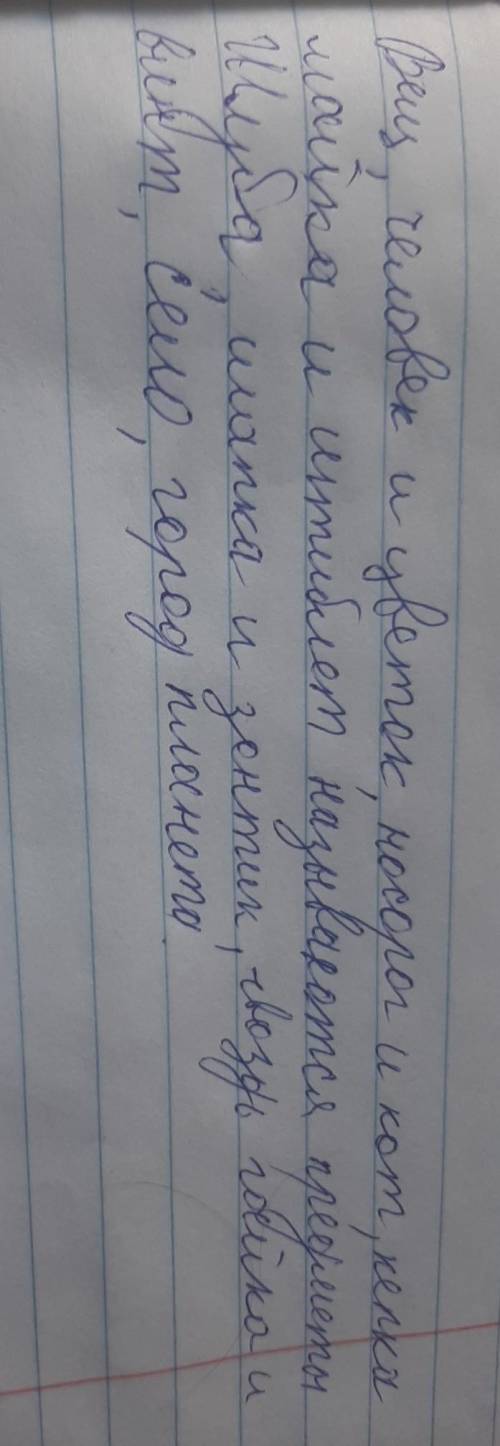 Вещ, человек и цветок, носорог и кот, кепка
майка и штиблет называются предметы
Шуба, шапка и зонтик, гвоздь гайка и
винт, село, город планета